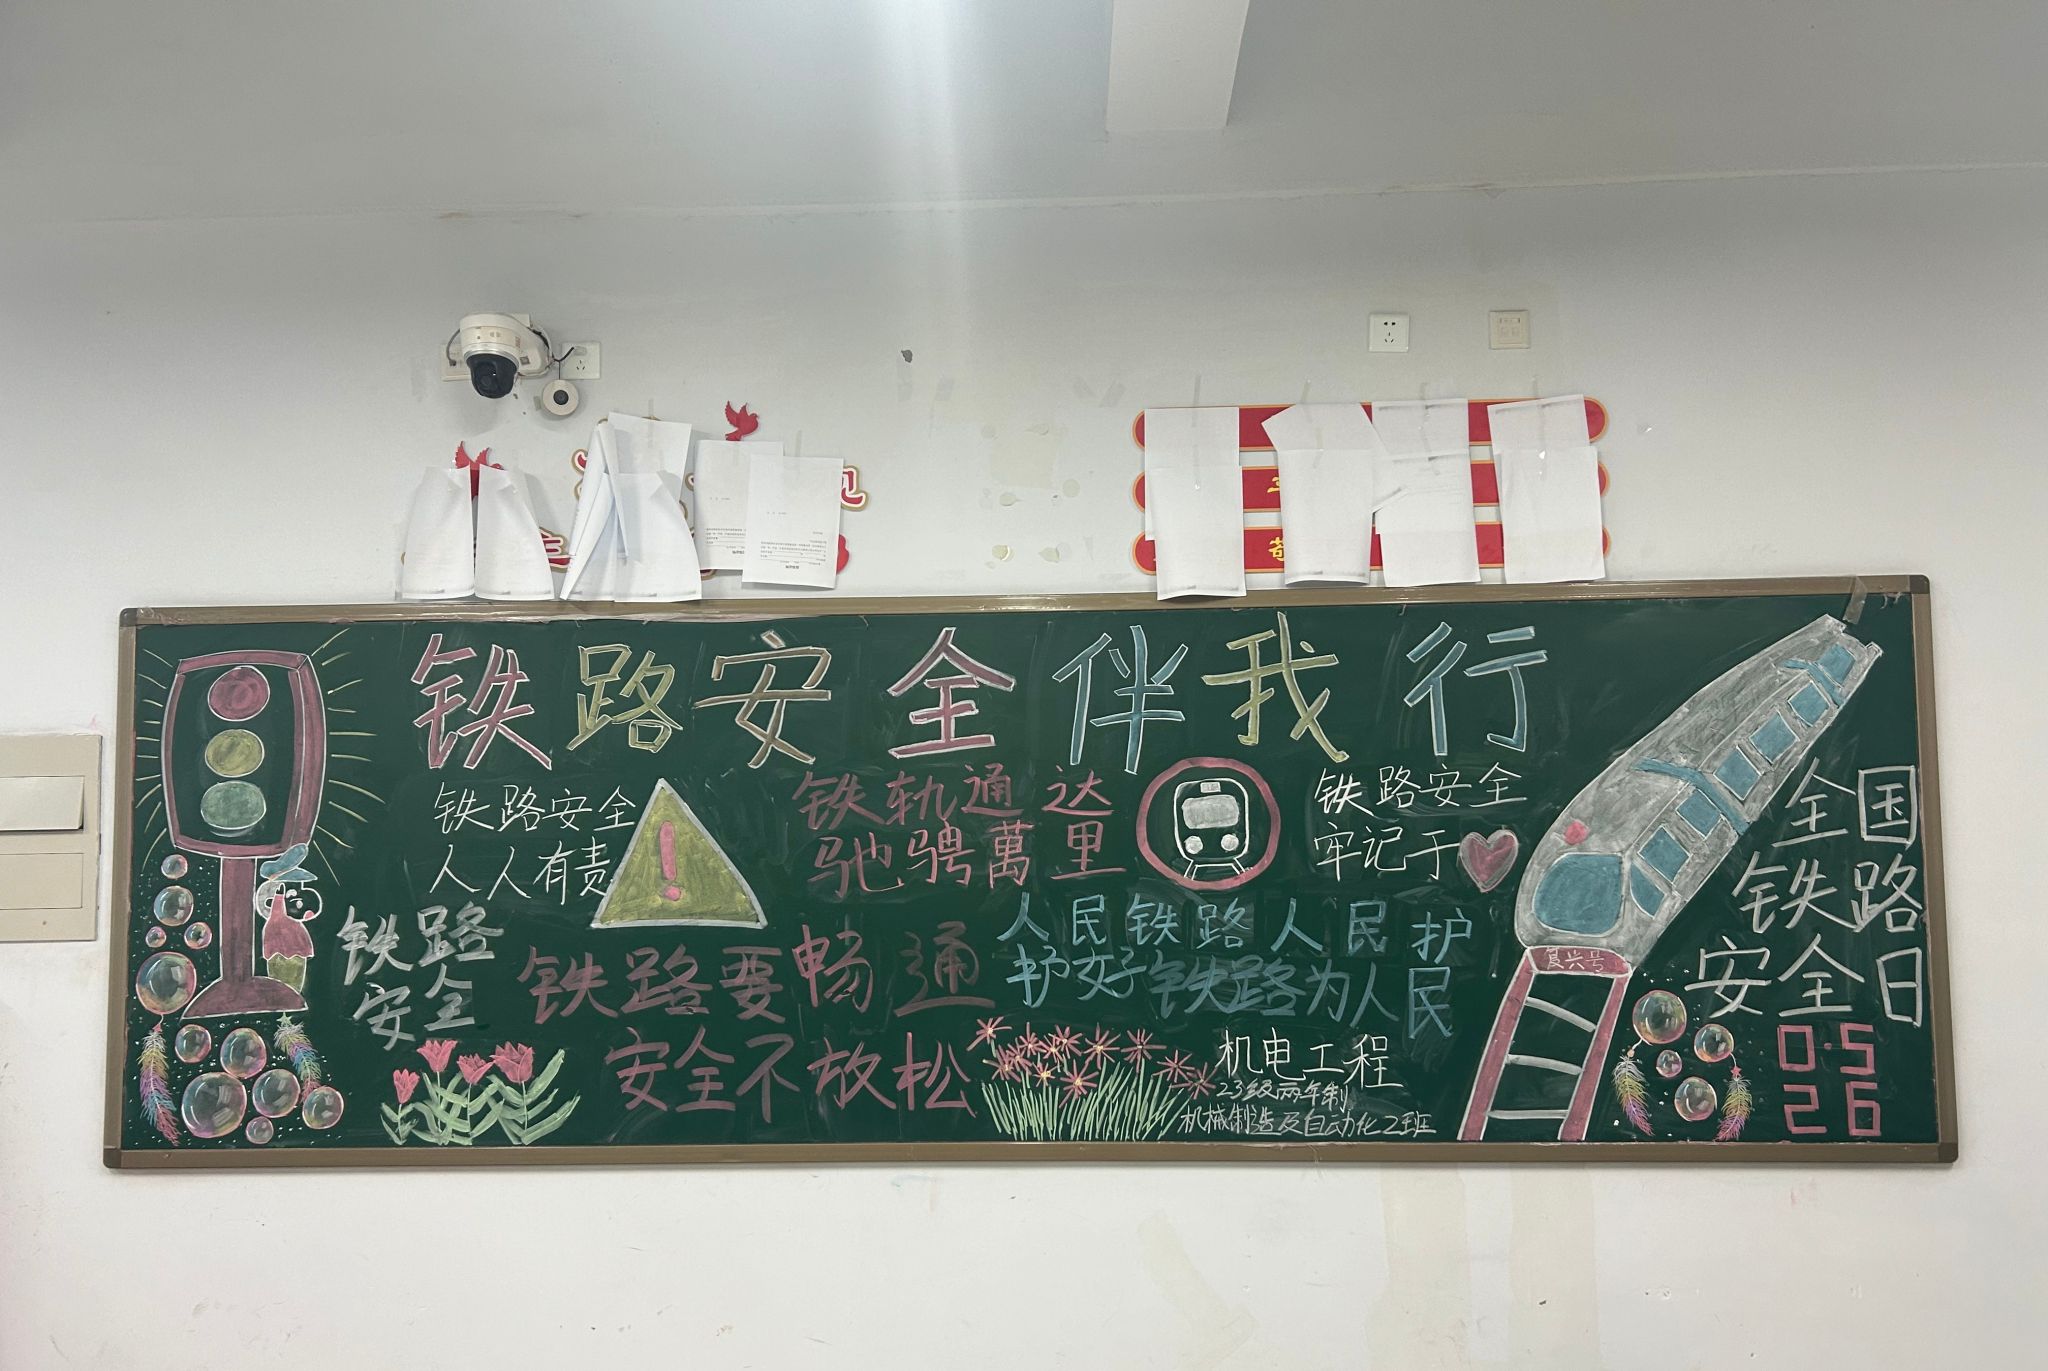 铁路安全伴我行
铁路安全
人人有责
铁轨通达
驰骋萬里
铁路安全
牢记于
铁路
安全
铁路要畅通
安全不放松
人民铁路人民护
护好铁路为人民
机电工程
23级两年制
机械制造及自动化2班
复兴号
全国
铁路
安全日
05
26